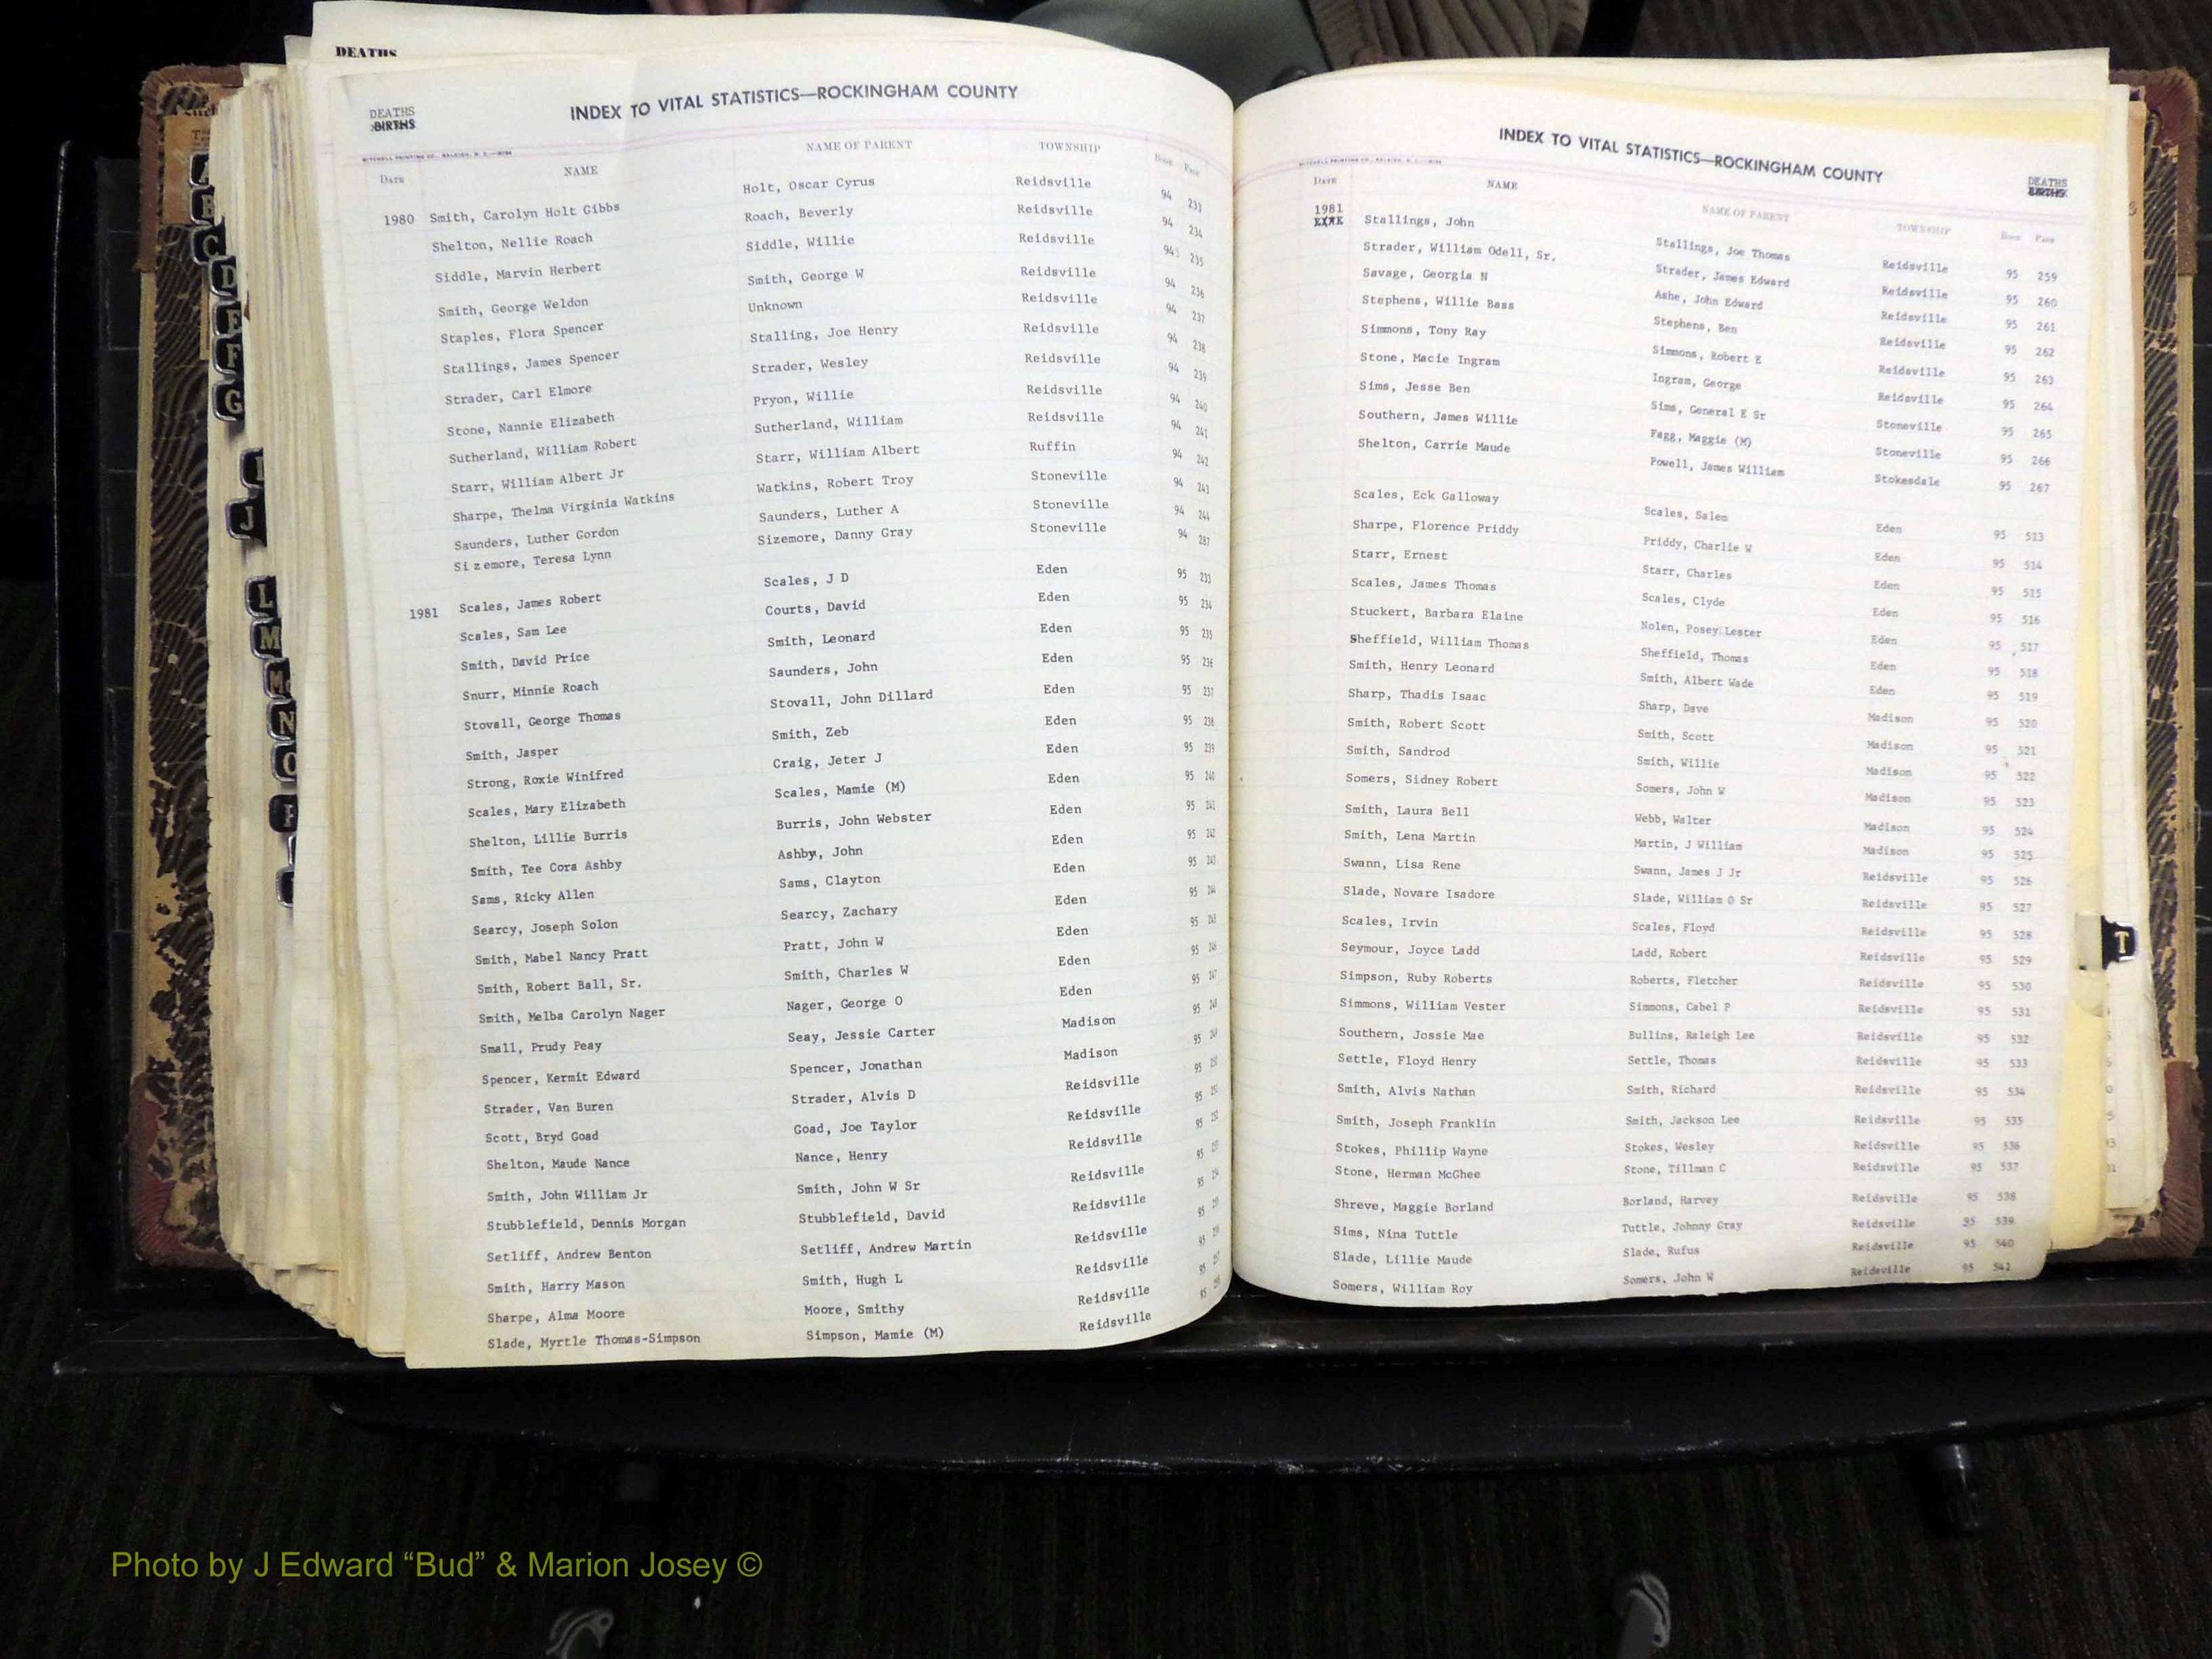 DEATHS
DEATHS
BIRTHS
INDEX TO VITAL STATISTICS—ROCKINGHAM COUNTY
MITCHELL PRINTING CO., RALEIGH, N. C.
DATE NAME NAME OF PARENT TOWNSHIP BOOK PAGE
1980 Smith, Carolyn Holt Gibbs Holt, Oscar Cyrus Reidsville 94 233
Shelton, Nellie Roach Roach, Beverly Reidsville 94 234
Siddle, Marvin Herbert Siddle, Willie Reidsville 94 235
Smith, George Weldon Smith, George W Reidsville 94 236
Staples, Flora Spencer Unknown Reidsville 94 237
Stallings, James Spencer Stalling, Joe Henry Reidsville 94 238
Strader, Carl Elmore Strader, Wesley Reidsville 94 239
Stone, Nannie Elizabeth Pryon, Willie Reidsville 94 240
Sutherland, William Robert Sutherland, William Reidsville 94 241
Starr, William Albert Jr Starr, William Albert Ruffin 94 242
Sharpe, Thelma Virginia Watkins Watkins, Robert Troy Stoneville 94 243
Saunders, Luther Gordon Saunders, Luther A Stoneville 94 244
Sizemore, Teresa Lynn Sizemore, Danny Gray Stoneville 94 287
1981 Scales, James Robert Scales, J D Eden 95 233
Scales, Sam Lee Courts, David Eden 95 234
Smith, David Price Smith, Leonard Eden 95 235
Snurr, Minnie Roach Saunders, John Eden 95 236
Stovall, George Thomas Stovall, John Dillard Eden 95 237
Smith, Jasper Smith, Zeb Eden 95 238
Strong, Roxie Winifred Craig, Jeter J Eden 95 239
Scales, Mary Elizabeth Scales, Mamie (M) Eden 95 240
Shelton, Lillie Burris Burris, John Webster Eden 95 241
Smith, Tee Cora Ashby Ashby, John Eden 95 242
Sams, Ricky Allen Sams, Clayton Eden 95 243
Searcy, Joseph Solon Searcy, Zachary Eden 95 244
Smith, Mabel Nancy Pratt Pratt, John W Eden 95 245
Smith, Robert Ball, Sr. Smith, Charles W Eden 95 246
Smith, Melba Carolyn Nager Nager, George O Eden 95 247
Small, Prudy Peay Seay, Jessie Carter Madison 95 248
Spencer, Kermit Edward Spencer, Jonathan Madison 95 249
Strader, Van Buren Strader, Alvis D Reidsville 95
Scott, Bryd Goad Goad, Joe Taylor Reidsville 95
Shelton, Maude Nance Nance, Henry Reidsville 95
Smith, John William Jr Smith, John W Sr Reidsville 95
Stubblefield, Dennis Morgan Stubblefield, David Reidsville 95
Setliff, Andrew Benton Setliff, Andrew Martin Reidsville 95
Smith, Harry Mason Smith, Hugh L Reidsville 95
Sharpe, Alma Moore Moore, Smithy Reidsville 95
Slade, Myrtle Thomas-Simpson Simpson, Mamie (M) Reidsville 95
INDEX TO VITAL STATISTICS—ROCKINGHAM COUNTY
DEATHS
BIRTHS
MITCHELL PRINTING CO., RALEIGH, N. C.
DATE NAME NAME OF PARENT TOWNSHIP BOOK PAGE
1981 Stallings, John Stallings, Joe Thomas Reidsville 95 259
Strader, William Odell, Sr. Strader, James Edward Reidsville 95 260
Savage, Georgia N Ashe, John Edward Reidsville 95 261
Stephens, Willie Bass Stephens, Ben Reidsville 95 262
Simmons, Tony Ray Simmons, Robert E Reidsville 95 263
Stone, Macie Ingram Ingram, George Reidsville 95 264
Sims, Jesse Ben Sims, General E Sr Stoneville 95 265
Southern, James Willie Fagg, Maggie (M) Stoneville 95 266
Shelton, Carrie Maude Powell, James William Stokesdale 95 267
Scales, Eck Galloway Scales, Salem Eden 95 513
Sharpe, Florence Priddy Priddy, Charlie W Eden 95 514
Starr, Ernest Starr, Charles Eden 95 515
Scales, James Thomas Scales, Clyde Eden 95 516
Stuckert, Barbara Elaine Nolen, Posey Lester Eden 95 517
Sheffield, William Thomas Sheffield, Thomas Eden 95 518
Smith, Henry Leonard Smith, Albert Wade Eden 95 519
Sharp, Thadis Isaac Sharp, Dave Madison 95 520
Smith, Robert Scott Smith, Scott Madison 95 521
Smith, Sandrod Smith, Willie Madison 95 522
Somers, Sidney Robert Somers, John W Madison 95 523
Smith, Laura Bell Webb, Walter Madison 95 524
Smith, Lena Martin Martin, J William Madison 95 525
Swann, Lisa Rene Swann, James J Jr Reidsville 95 526
Slade, Novare Isadore Slade, William O Sr Reidsville 95 527
Scales, Irvin Scales, Floyd Reidsville 95 528
Seymour, Joyce Ladd Ladd, Robert Reidsville 95 529
Simpson, Ruby Roberts Roberts, Fletcher Reidsville 95 530
Simmons, William Vester Simmons, Cabel P Reidsville 95 531
Southern, Jossie Mae Bullins, Raleigh Lee Reidsville 95 532
Settle, Floyd Henry Settle, Thomas Reidsville 95 533
Smith, Alvis Nathan Smith, Richard Reidsville 95 534
Smith, Joseph Franklin Smith, Jackson Lee Reidsville 95 535
Stokes, Phillip Wayne Stokes, Wesley Reidsville 95 536
Stone, Herman McGhee Stone, Tillman C Reidsville 95 537
Shreve, Maggie Borland Borland, Harvey Reidsville 95 538
Sims, Nina Tuttle Tuttle, Johnny Gray Reidsville 95 539
Slade, Lillie Maude Slade, Rufus Reidsville 95 540
Somers, William Roy Somers, John W Reidsville 95 541
A
B
C
D
E
F
G
I
J
L
M
Mc
N
O
P
T
Photo by J Edward “Bud” & Marion Josey ©